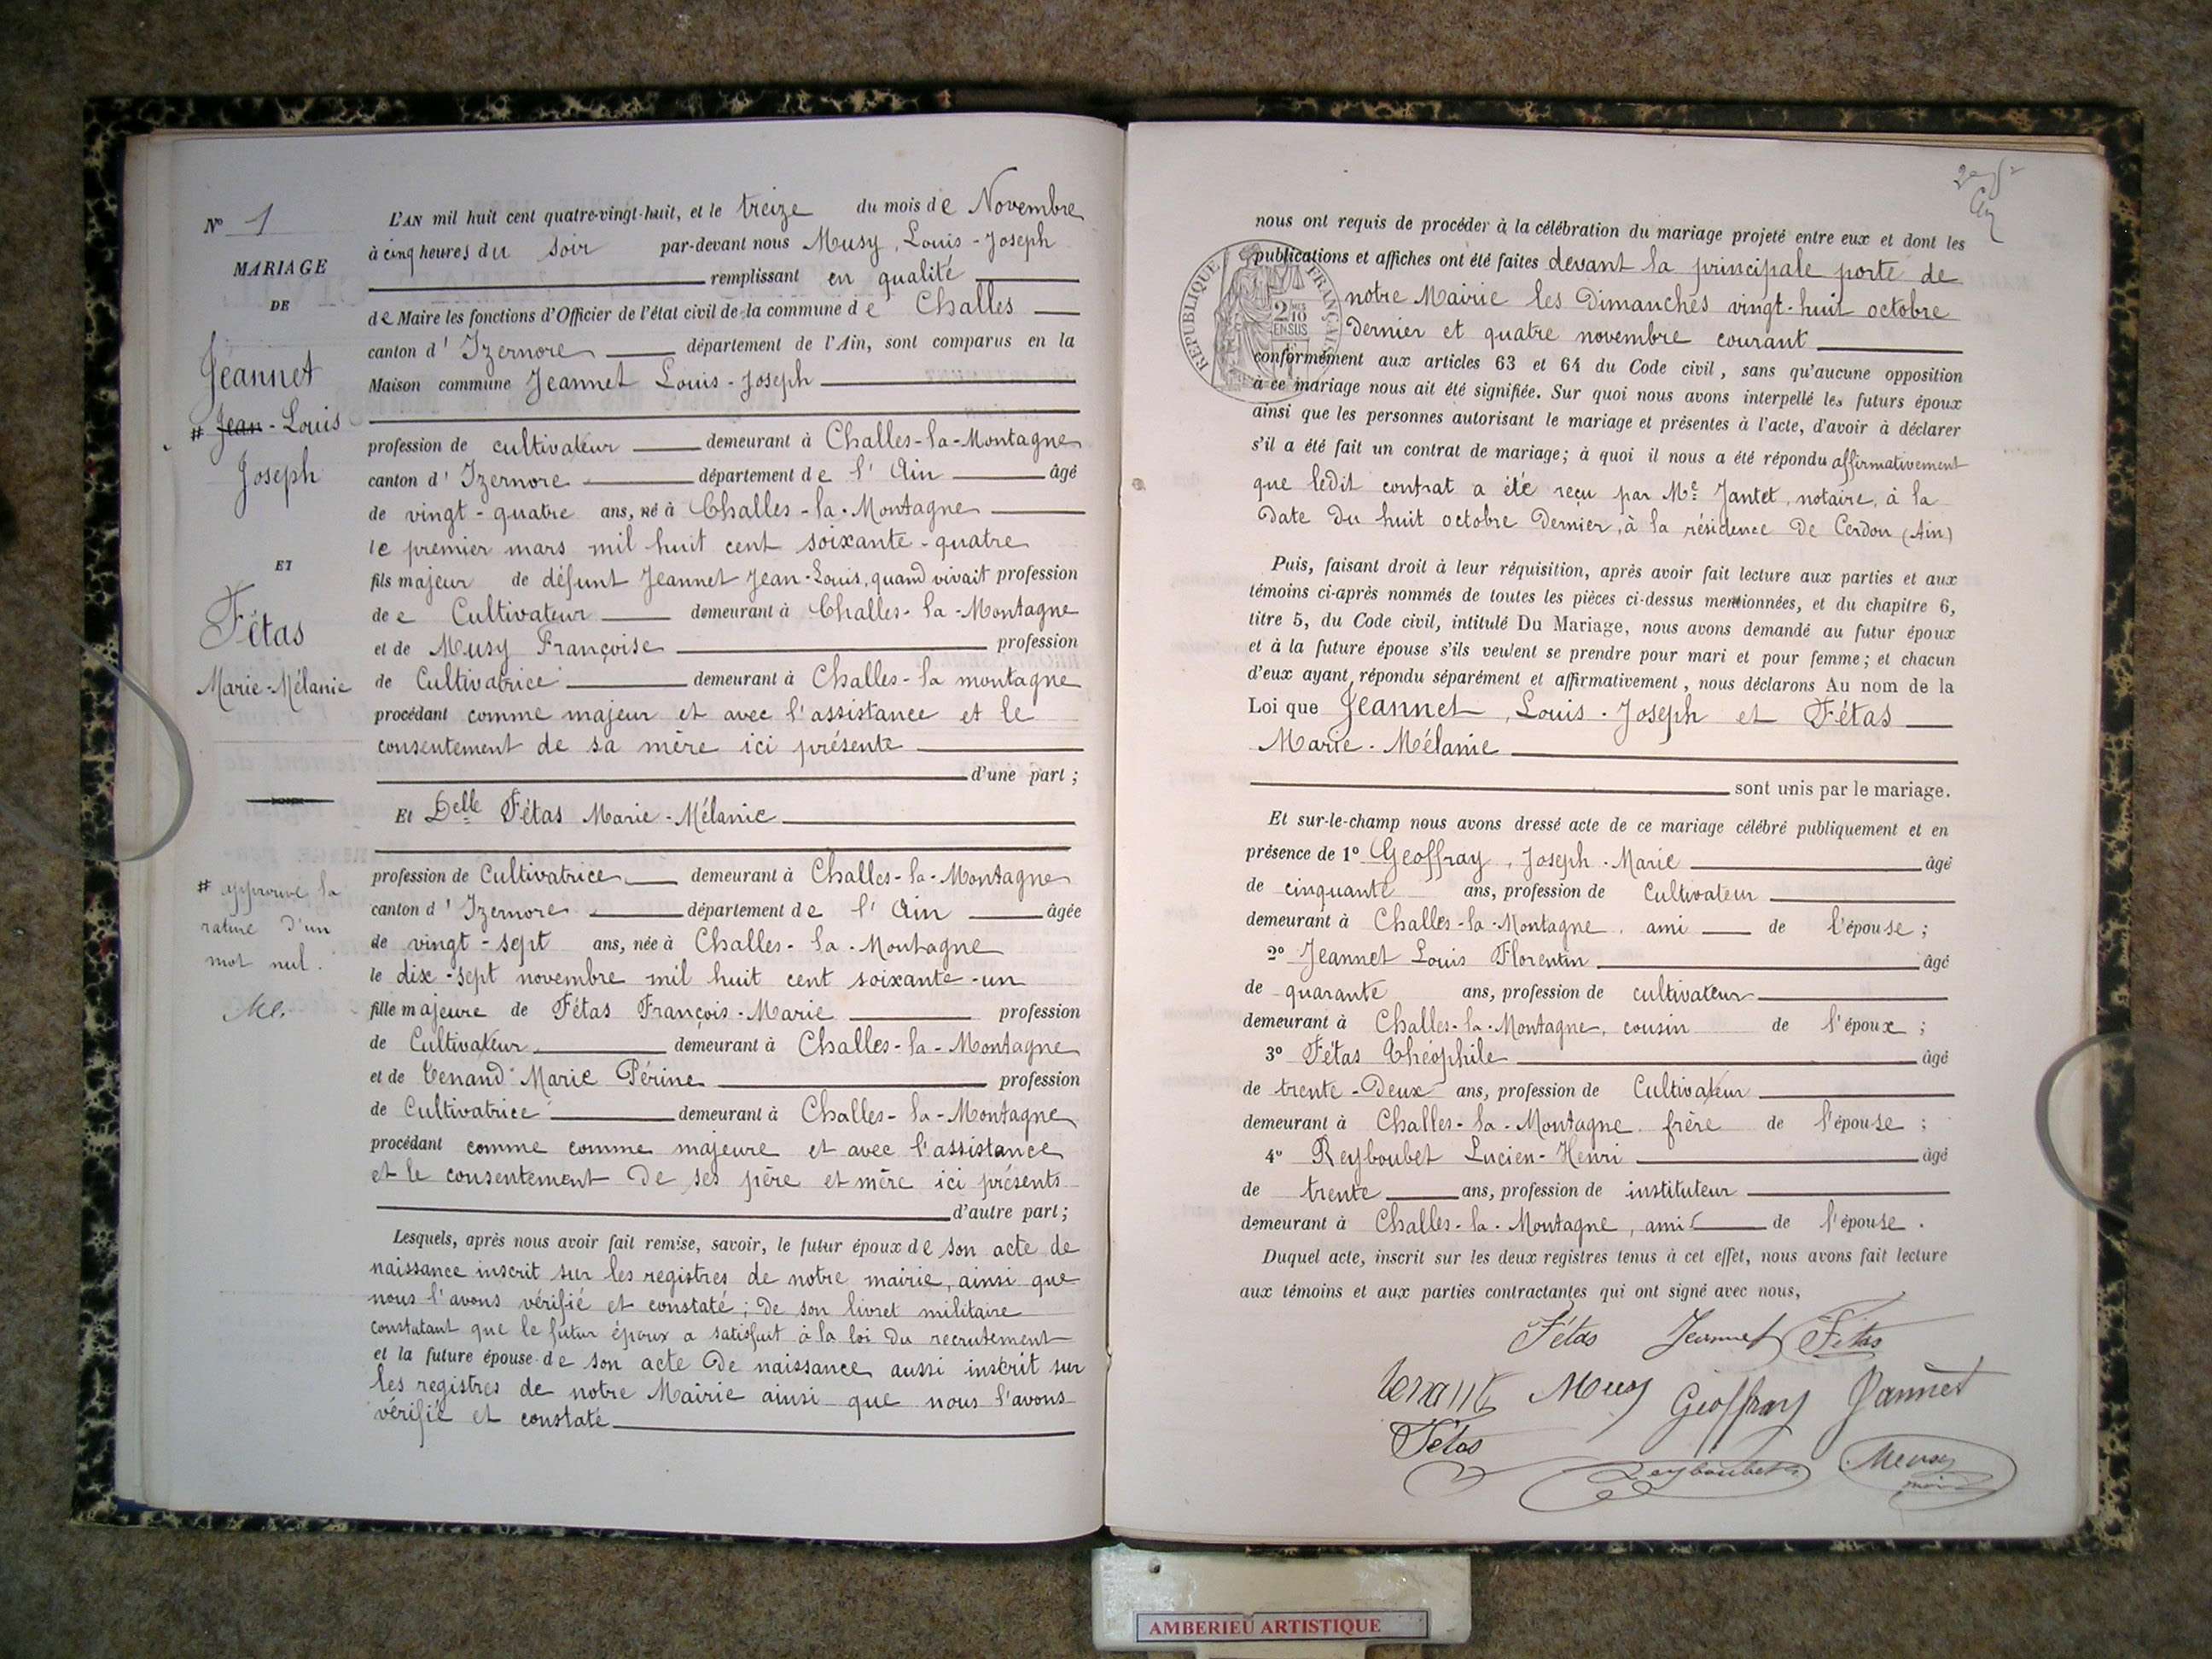 N° 1
MARIAGE
DE
Jeannet
# Jean - Louis
Joseph
ET
Fétas
Marie-Mélanie
# approuvé la
rature d'un
mot nul.
L'AN mil huit cent quatre-vingt-huit, et le treize du mois de Novembre
à cinq heures du soir par-devant nous Musy, Louis-Joseph
remplissant en qualité
de Maire les fonctions d'Officier de l'état civil de la commune de Challes
canton d' Izernore département de l'Ain, sont comparus en la
Maison commune Jeannet Louis-Joseph
profession de cultivateur demeurant à Challes-la-Montagne
canton d' Izernore département de l' Ain âgé
de vingt-quatre ans, né à Challes-la-Montagne
le premier mars mil huit cent soixante-quatre
fils majeur de défunt Jeannet Jean-Louis, quand vivait profession
de e Cultivateur demeurant à Challes-la-Montagne
et de Musy Françoise profession
de Cultivatrice demeurant à Challes-la montagne
procédant comme majeur et avec l'assistance et le
consentement de sa mère ici présente
d'une part ;
Et Delle Fétas Marie-Mélanie
profession de Cultivatrice demeurant à Challes-la-Montagne
canton d' Izernore département de l' Ain âgée
de vingt-sept ans, née à Challes-la-Montagne
le dix-sept novembre mil huit cent soixante-un
fille majeure de Fétas François-Marie profession
de Cultivateur demeurant à Challes-la-Montagne
et de Tenand Marie Périne profession
de Cultivatrice demeurant à Challes-la-Montagne
procédant comme comme majeure et avec l'assistance
et le consentement de ses père et mère ici présents
d'autre part ;
Lesquels, après nous avoir fait remise, savoir, le futur époux de son acte de
naissance inscrit sur les registres de notre mairie, ainsi que
nous l'avons vérifié et constaté ; de son livret militaire
constatant que le futur époux a satisfait à la loi du recrutement
et la future épouse de son acte de naissance aussi inscrit sur
les registres de notre Mairie ainsi que nous l'avons
vérifié et constaté
nous ont requis de procéder à la célébration du mariage projeté entre eux et dont les
publications et affiches ont été faites devant la principale porte de
notre Mairie les Dimanches vingt-huit octobre
dernier et quatre novembre courant
conformément aux articles 63 et 64 du Code civil, sans qu'aucune opposition
à ce mariage nous ait été signifiée. Sur quoi nous avons interpellé les futurs époux
ainsi que les personnes autorisant le mariage et présentes à l'acte, d'avoir à déclarer
s'il a été fait un contrat de mariage ; à quoi il nous a été répondu affirmativement
que ledit contrat a été reçu par Me Jantet, notaire, à la
date du huit octobre dernier, à la résidence de Cerdon (Ain)
Puis, faisant droit à leur réquisition, après avoir fait lecture aux parties et aux
témoins ci-après nommés de toutes les pièces ci-dessus mentionnées, et du chapitre 6,
titre 5, du Code civil, intitulé Du Mariage, nous avons demandé au futur époux
et à la future épouse s'ils veulent se prendre pour mari et pour femme ; et chacun
d'eux ayant répondu séparément et affirmativement, nous déclarons Au nom de la
Loi que Jeannet, Louis-Joseph et Fétas
Marie-Mélanie
sont unis par le mariage.
Et sur-le-champ nous avons dressé acte de ce mariage célébré publiquement et en
présence de 1° Geoffray, Joseph-Marie âgé
de cinquante ans, profession de Cultivateur
demeurant à Challes-la-Montagne, ami de l'épouse ;
2° Jeannet Louis Florentin âgé
de quarante ans, profession de cultivateur
demeurant à Challes-la-Montagne, cousin de l'époux ;
3° Fétas Théophile âgé
de trente-deux ans, profession de Cultivateur
demeurant à Challes-la-Montagne frère de l'épouse ;
4° Reyboubet Lucien-Henri âgé
de trente ans, profession de instituteur
demeurant à Challes-la-Montagne, ami de l'épouse.
Duquel acte, inscrit sur les deux registres tenus à cet effet, nous avons fait lecture
aux témoins et aux parties contractantes qui ont signé avec nous,
Fétas Jeannet Fétas
Musy Geoffray
Fétas Reyboubet Musy
RÉPUBLIQUE FRANÇAISE
AMBERIEU ARTISTIQUE